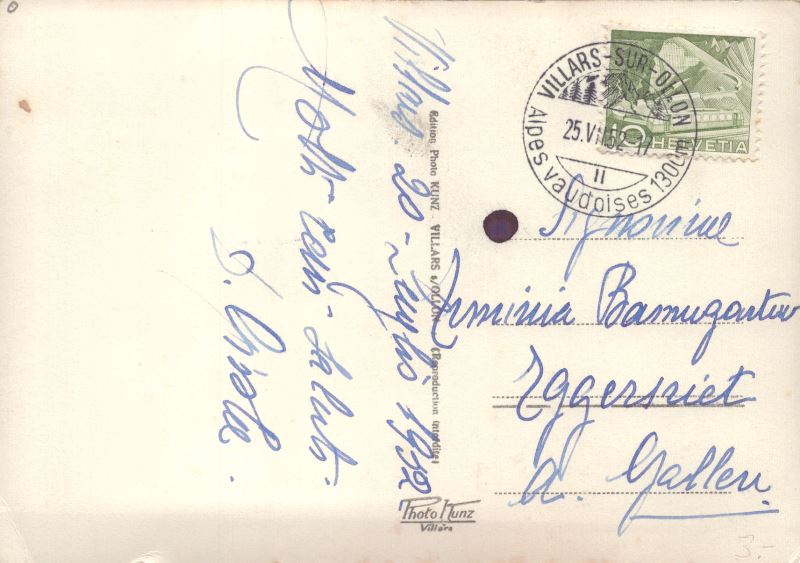 Villars. 20 - Luglio 1952.
Molti cari saluti
VILLARS-SUR-OLLON
25.VII.52-17
II
Alpes vaudoises 1300m
10 HELVETIA
Signorine
Erminia Bamugartner
Eggersriet
a. Gallen.
Edition Photo KUNZ - VILLARS s/OLLON (Reproduction interdite)
Photo Kunz
Villars
3.-